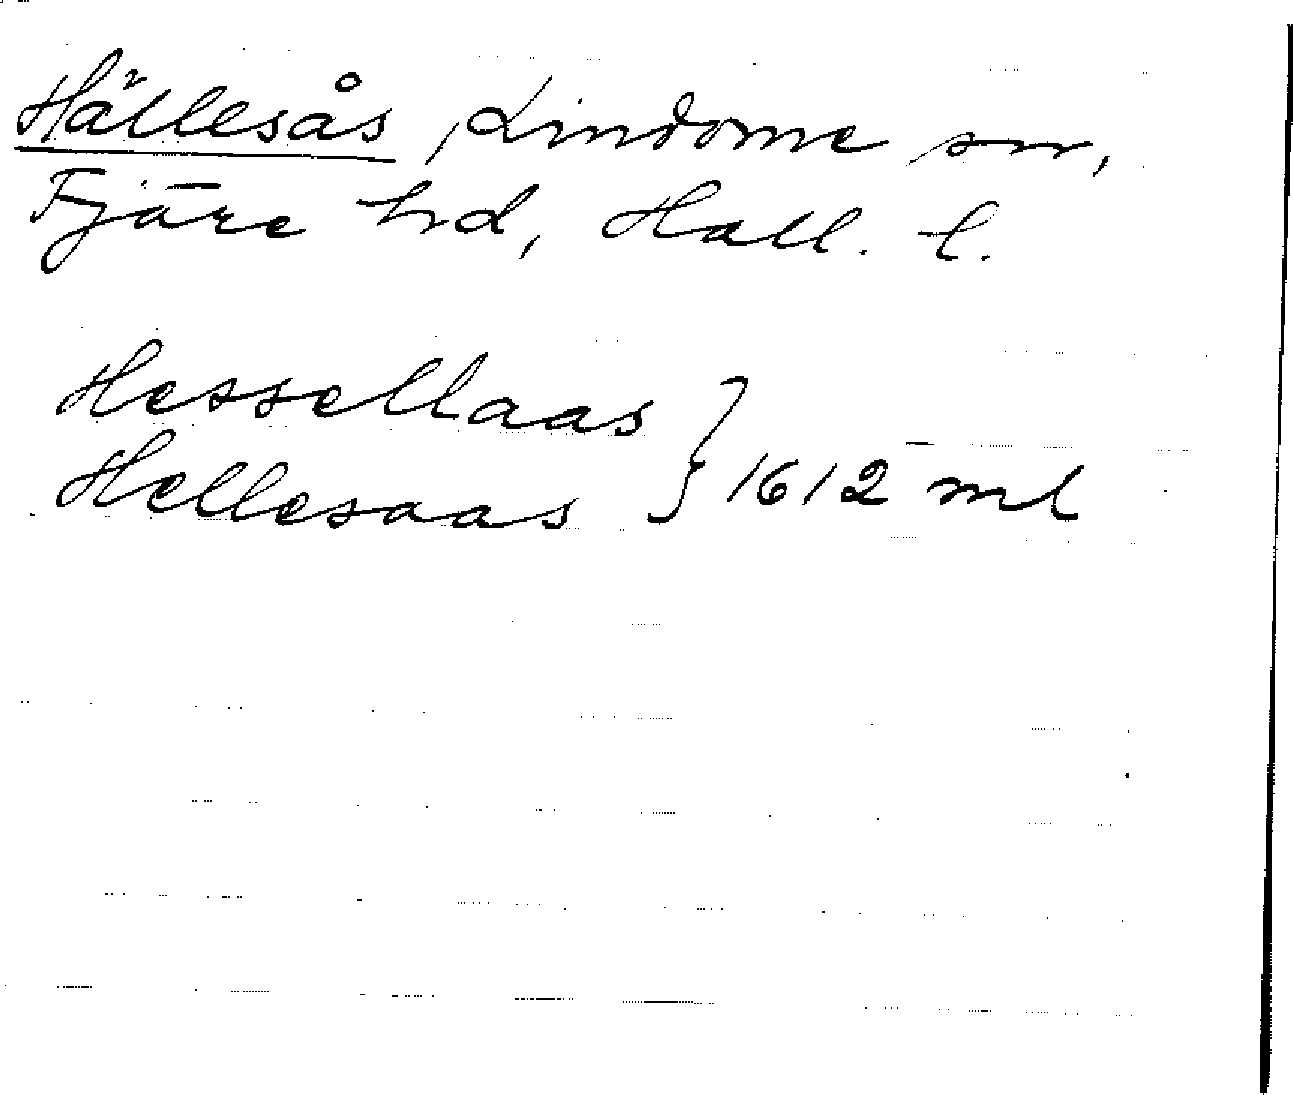 Hällesås, Lindome sn,
Fjäre hd, Hall. l.
Hessellaas
Hellesaas } 1612 ml